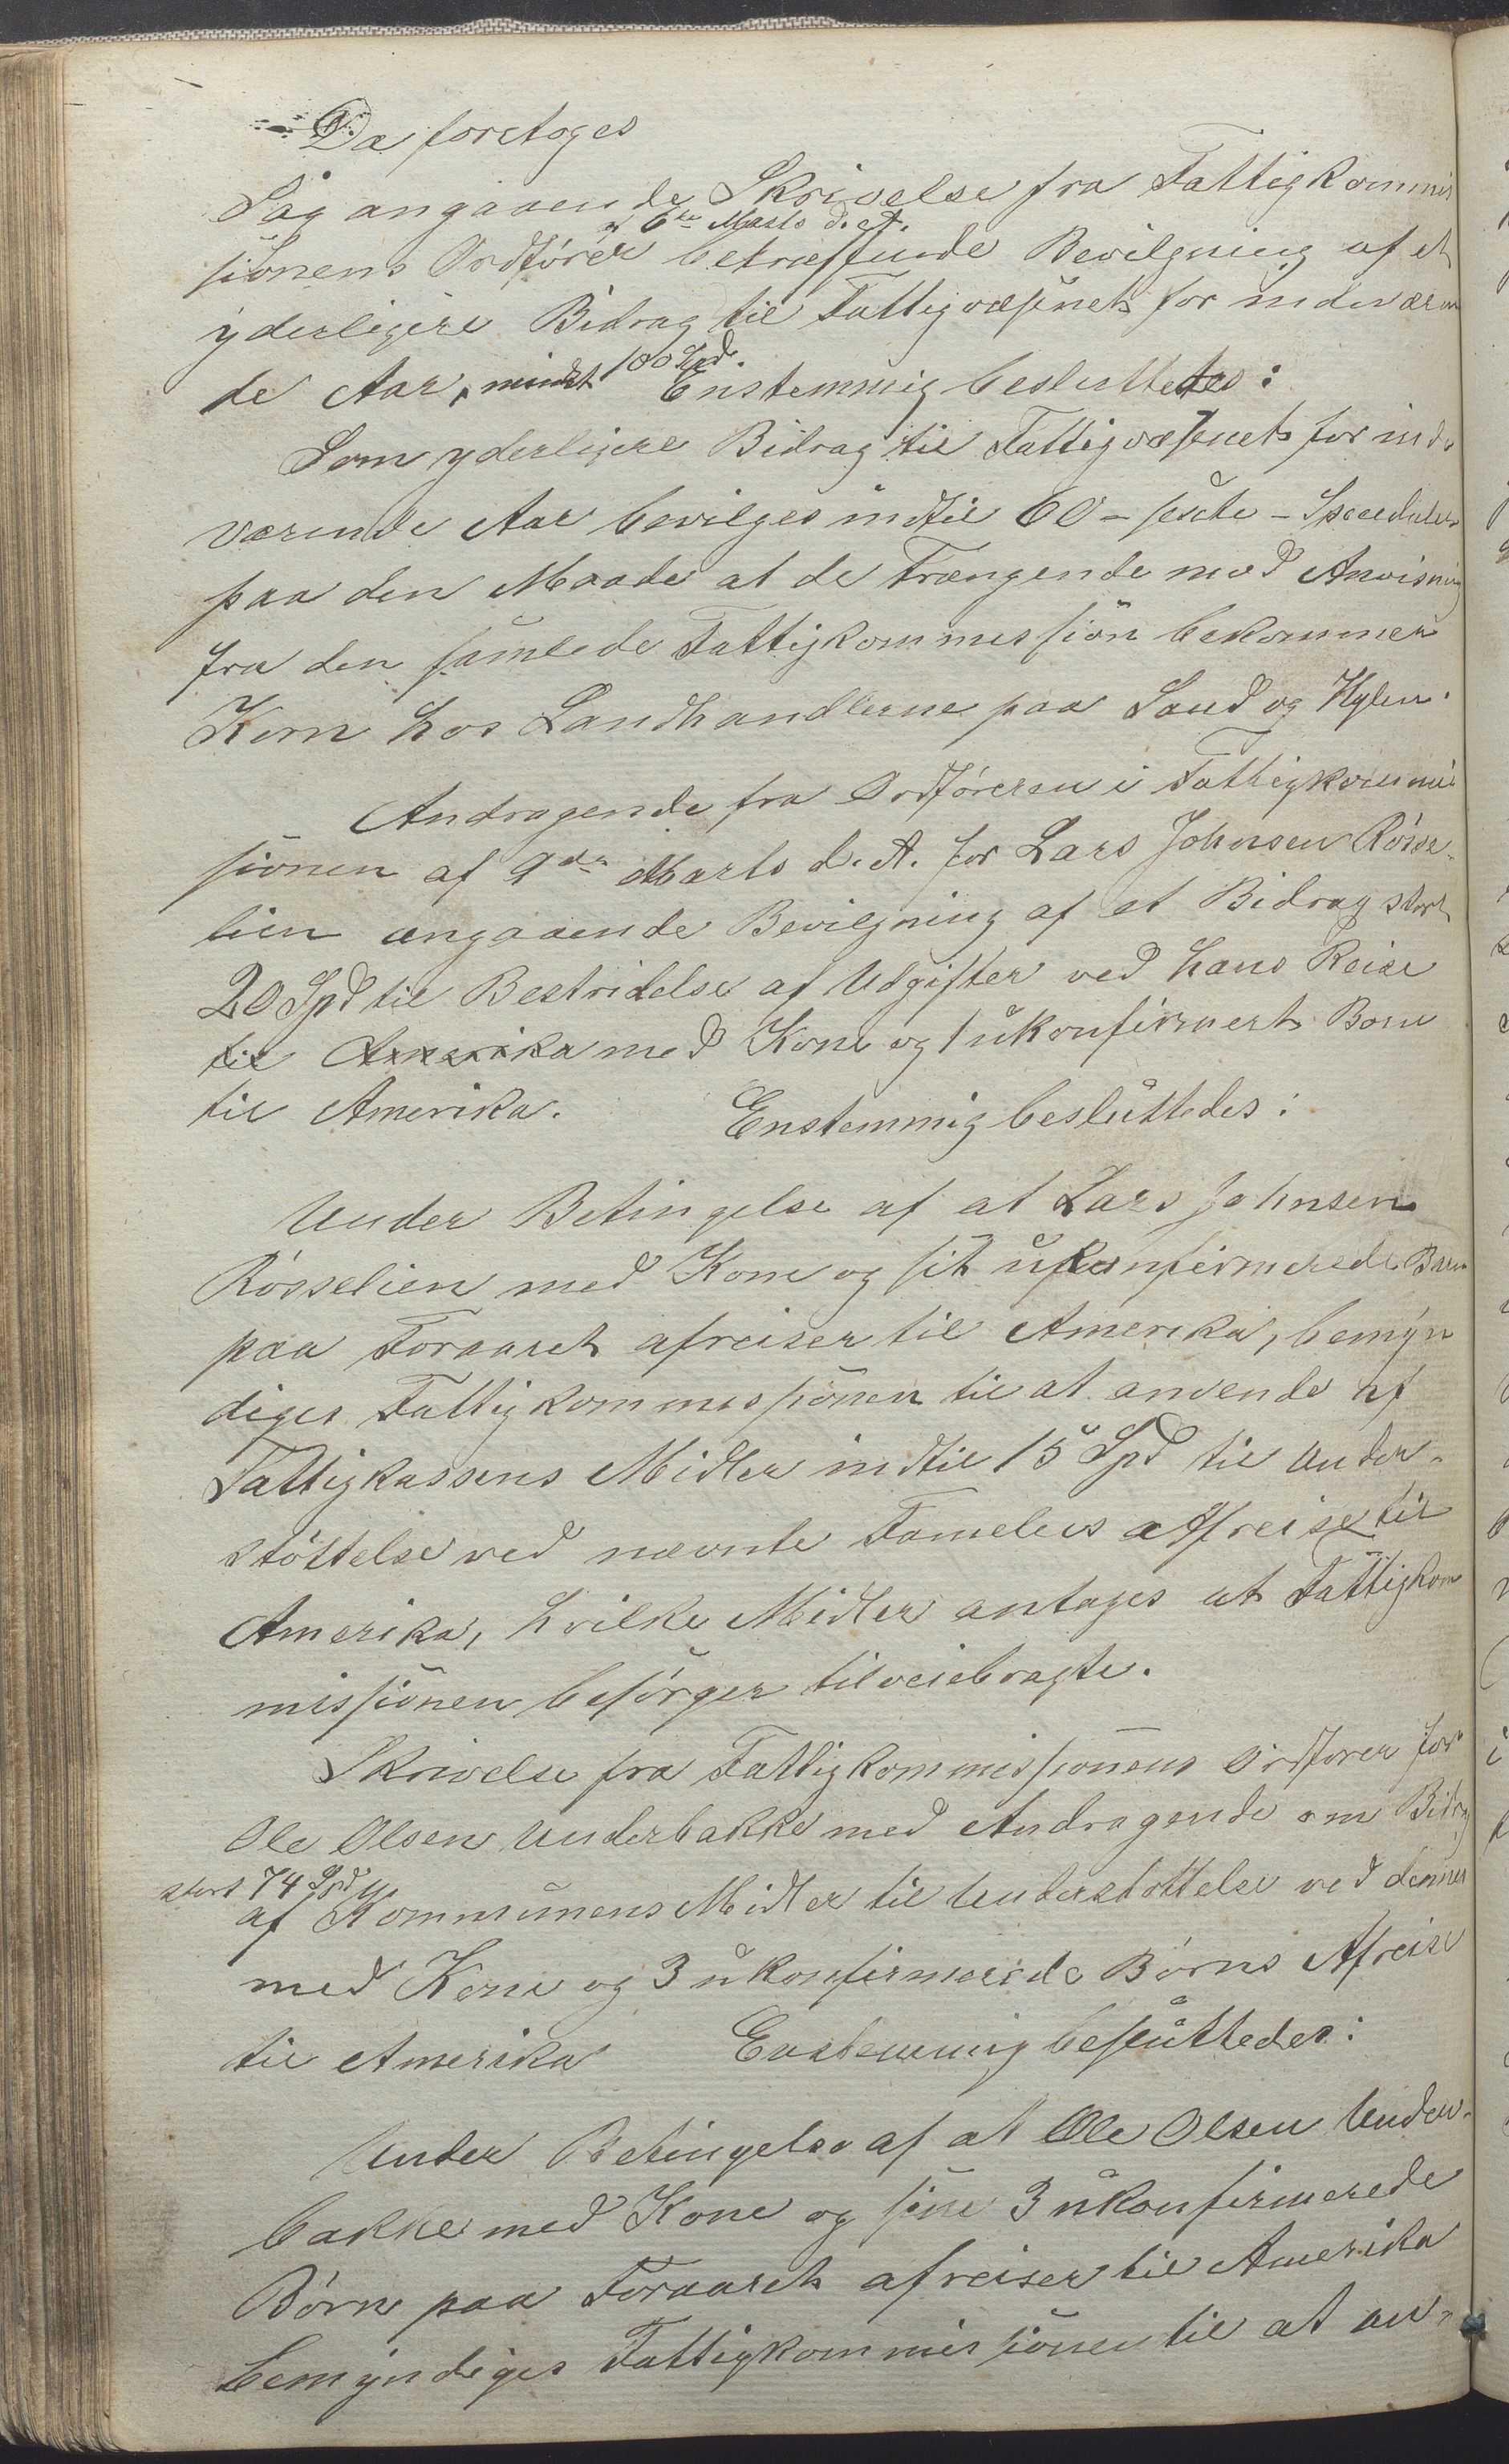 Da foretoges
Sag angaaende Skrivelse fra Fattigkommis
af 6te Marts d. A.
sionens Ordfører betræffende Bevilgning af et
yderligere Bidrag til Fattigvæsenet for indeværen
de Aar, mindst 100 Spd. Enstemmig besluttedes:
Som yderligere Bidrag til Fattigvæsenet for inde
værende Aar bevilges indtil 60 - sexti - Speciedaler
paa den Maade at de Trængende mod Anvisning
fra den samlede Fattigkommission bekommer
Korn hos Landhandlerne paa Sand og Hylen.
Andragende fra Ordføreren i Fattigkommis
sionen af 9de Marts d. A. for Lars Johnsen Røsse-
lien angaaende Bevilgning af et Bidrag stort
20 Spd til Bestridelse af Udgifter ved hans Reise
til Amerika med Kone og 1 ukonfirmert Barn
til Amerika. Enstemmig besluttedes:
Under Betingelse af at Lars Johnsen
Røsselien med Kone og sit ukonfirmerede Barn
paa Foraaret afreiser til Amerika, bemyn
diges Fattigkommissionen til at anvende af
Fattigkassens Midler indtil 15 Spd til Under-
støttelse ved nævnte Famelies Afreise til
Amerika, hvilke Midler antages at Fattigkom
missionen besørger tilveiebragte.
Skrivelse fra Fattigkommissionens Ordfører for
Ole Olsen Underbakke med Andragende om Bidrag
stort 74 Spd
af Kommunens Midler til Understøttelse ved dennes
med Kone og 3 ukonfirmerede Børns Afreise
til Amerika Enstemmig besluttedes:
Under Betingelse af at Ole Olsen Under-
bakke med Kone og sine 3 ukonfirmerede
Børn paa Foraaret afreiser til Amerika
bemyndiges Fattigkommissionen til at an-